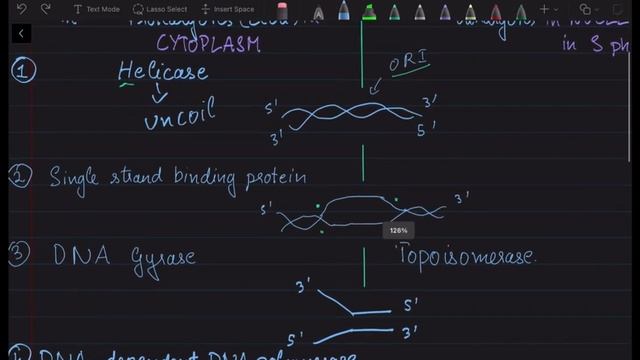 Text Mode Lasso Select Insert Space
in
CYTOPLASM in S ph
① Helicase ORI
uncoil 5' 3'
3' 5'
② Single strand binding protein
5' 3'
126%
③ DNA Gyrase Topoisomerase.
3' 5'
5' 3'
DNA dependent DNA polymerase